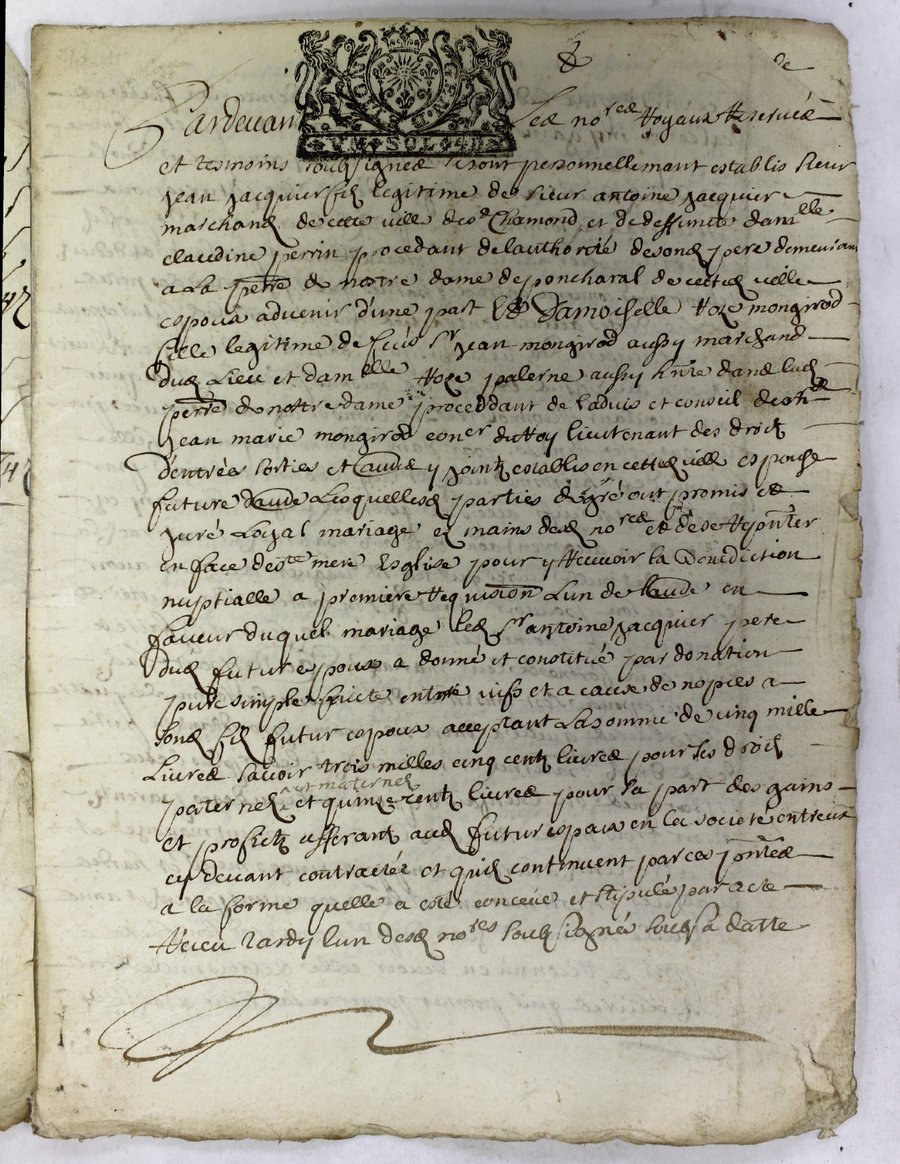 2e
Pardevant Les no.res Royaux Reservés
et tesmoins soubsignés se sont personnellemant establis sieur
Jean Jacquier fils legitime de sieur antoine Jacquier
marchand de cette ville de st Chamond et de deffunte damlle
claudine perrin procedant de lauthorité de sond pere demeurant
a La perre de nostre dame de poncharal de cette ville
espoux advenir d'une part Et Damoiselle Roze mongirod
fille legitime de feu sr Jean mongirod aussy marchand
dud Lieu et damelle Roze palerne aussy sur lad
perre de nostre dame procedant de ladvis et conseil de
Jean marie mongirod coner du Roy lieutenant des droits
d'entrées sorties et y joints establis en cette ville espouse
future daude Lesquelles parties de gré ont promis et
juré Loyal mariage es mains desd nores et de se
en face de ste mere Esglise pour y Recevoir la Benediction
nuptialle a premiere Requision L'un de Laude en
faveur duquel mariage led sr antoine Jacquier pere
dud futur espoux a donné et constitué par donation
pure simple faicte entre vifs et a cause de nopces a
sond fils futur espoux acceptant La somme de cinq mille
Livres savoir trois milles cinq cents livres pour ses droits
paternels et maternels et quinze cents livres pour sa part des gains
et profits afferants aud futur espoux en la societé entreux
cy devant contractée et quils continuent par ces pntes
a la forme quelle a esté conceue et stipulée par acte
Receu Tardy lun desd nores soubsignés soubs sa datte